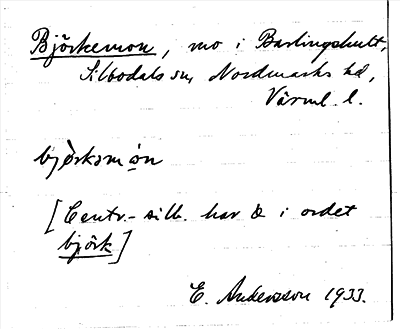 Björkemon, mo i Barlingshult,
Silbodals sn, Nordmarks hd,
Värml. l.
björksmòn
[Centr.-silb. har ö i ordet
björk]
E. Andersson 1933.